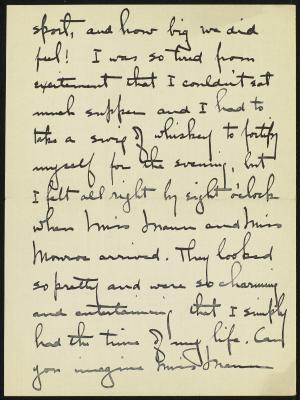 sport, and how big we did
feel! I was so tired from
excitement that I couldn't eat
much supper and I had to
take a swig of whiskey to fortify
myself for the evening, but
I felt all right by eight o'clock
when Miss Mann and Miss
Monroe arrived. They looked
so pretty and were so charming
and entertaining that I simply
had the time of my life. Can
you imagine Miss Mann